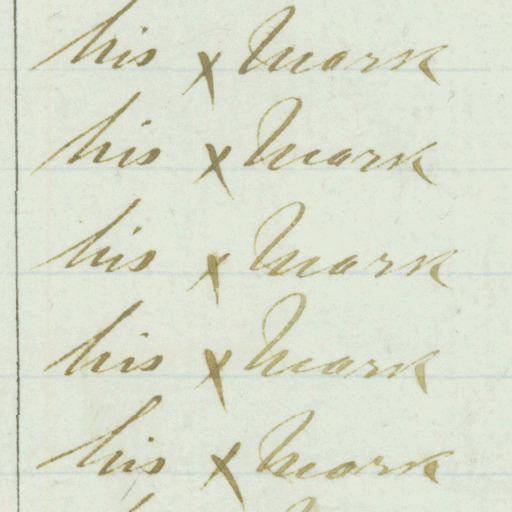 his x Mark
his x Mark
his x Mark
his x Mark
his x Mark